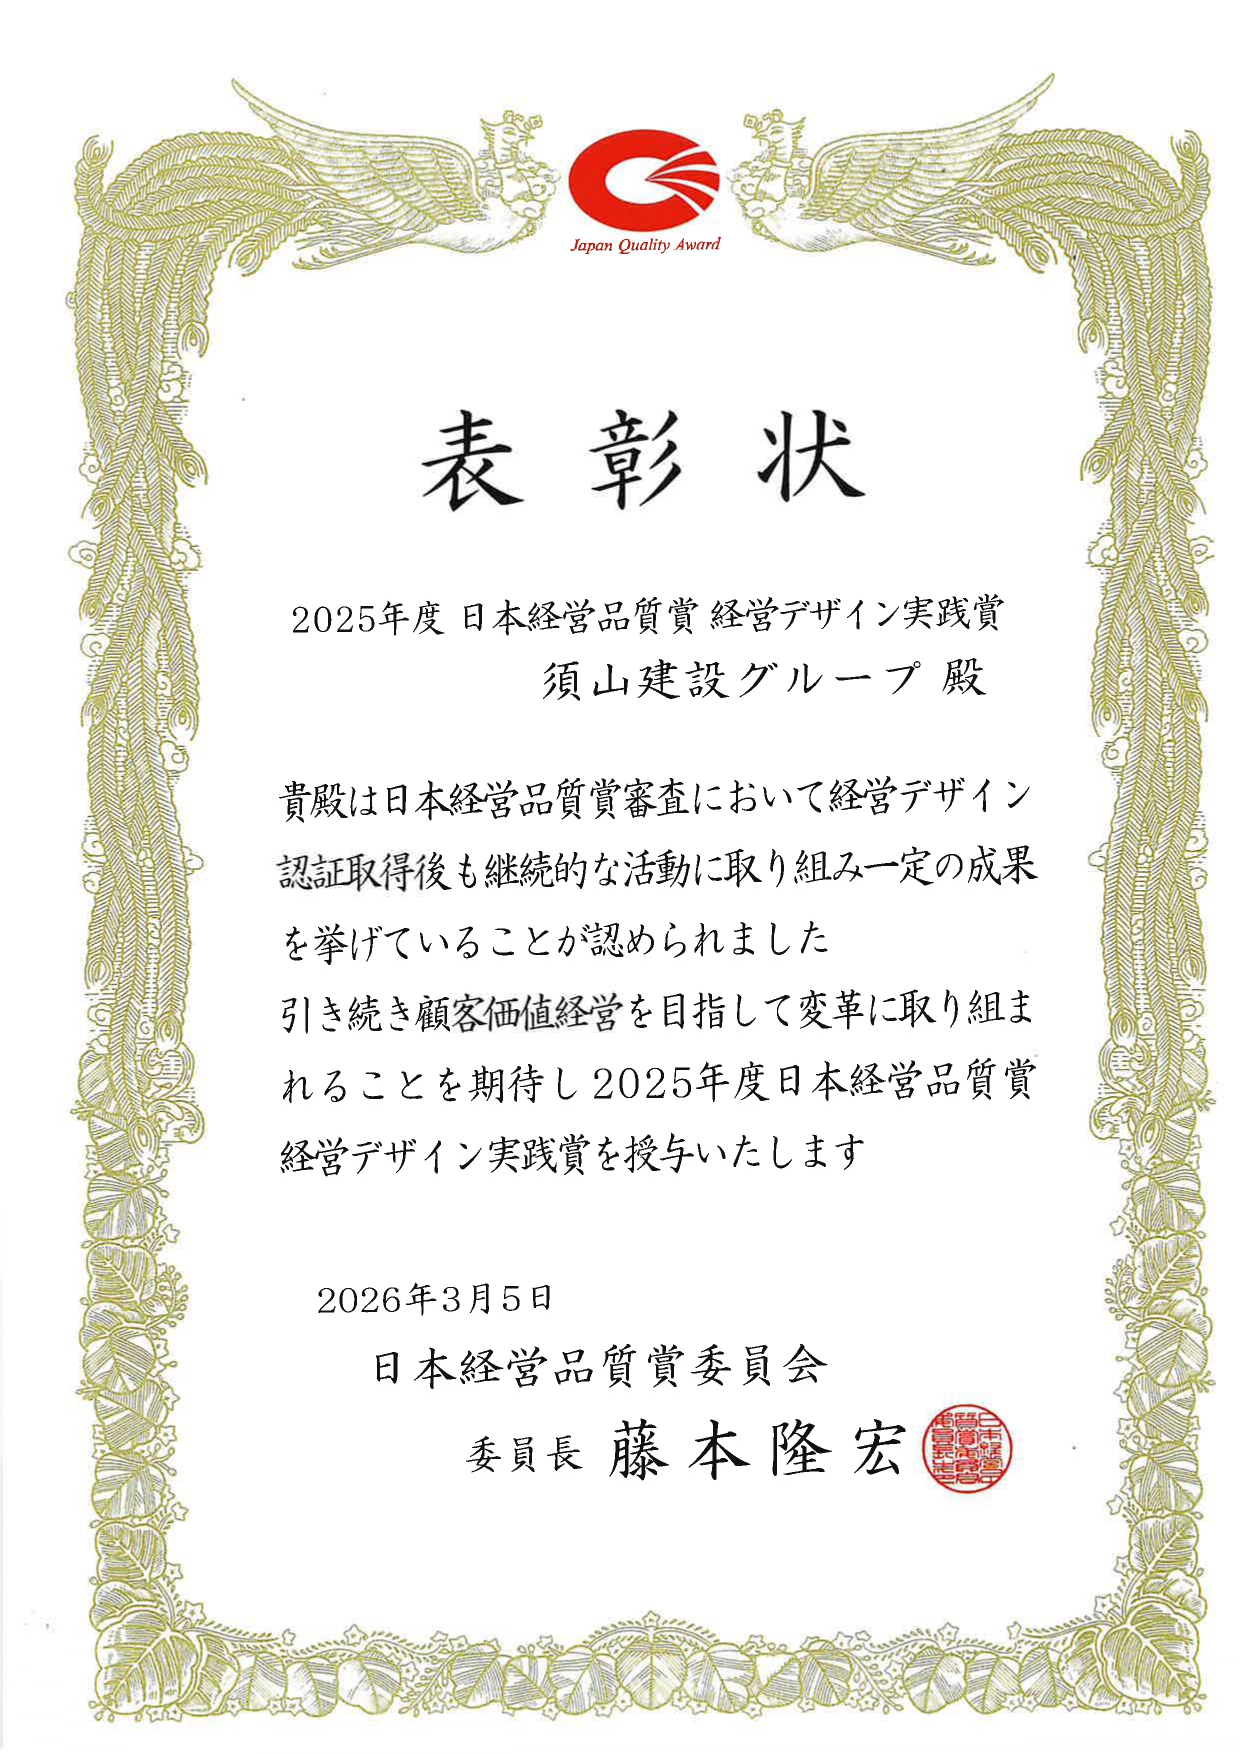 Japan Quality Award
表彰状
2025年度 日本経営品質賞 経営デザイン実践賞
須山建設グループ 殿
貴殿は日本経営品質賞審査において経営デザイン
認証取得後も継続的な活動に取り組み一定の成果
を挙げていることが認められました
引き続き顧客価値経営を目指して変革に取り組ま
れることを期待し2025年度日本経営品質賞
経営デザイン実践賞を授与いたします
2026年3月5日
日本経営品質賞委員会
委員長 藤本隆宏